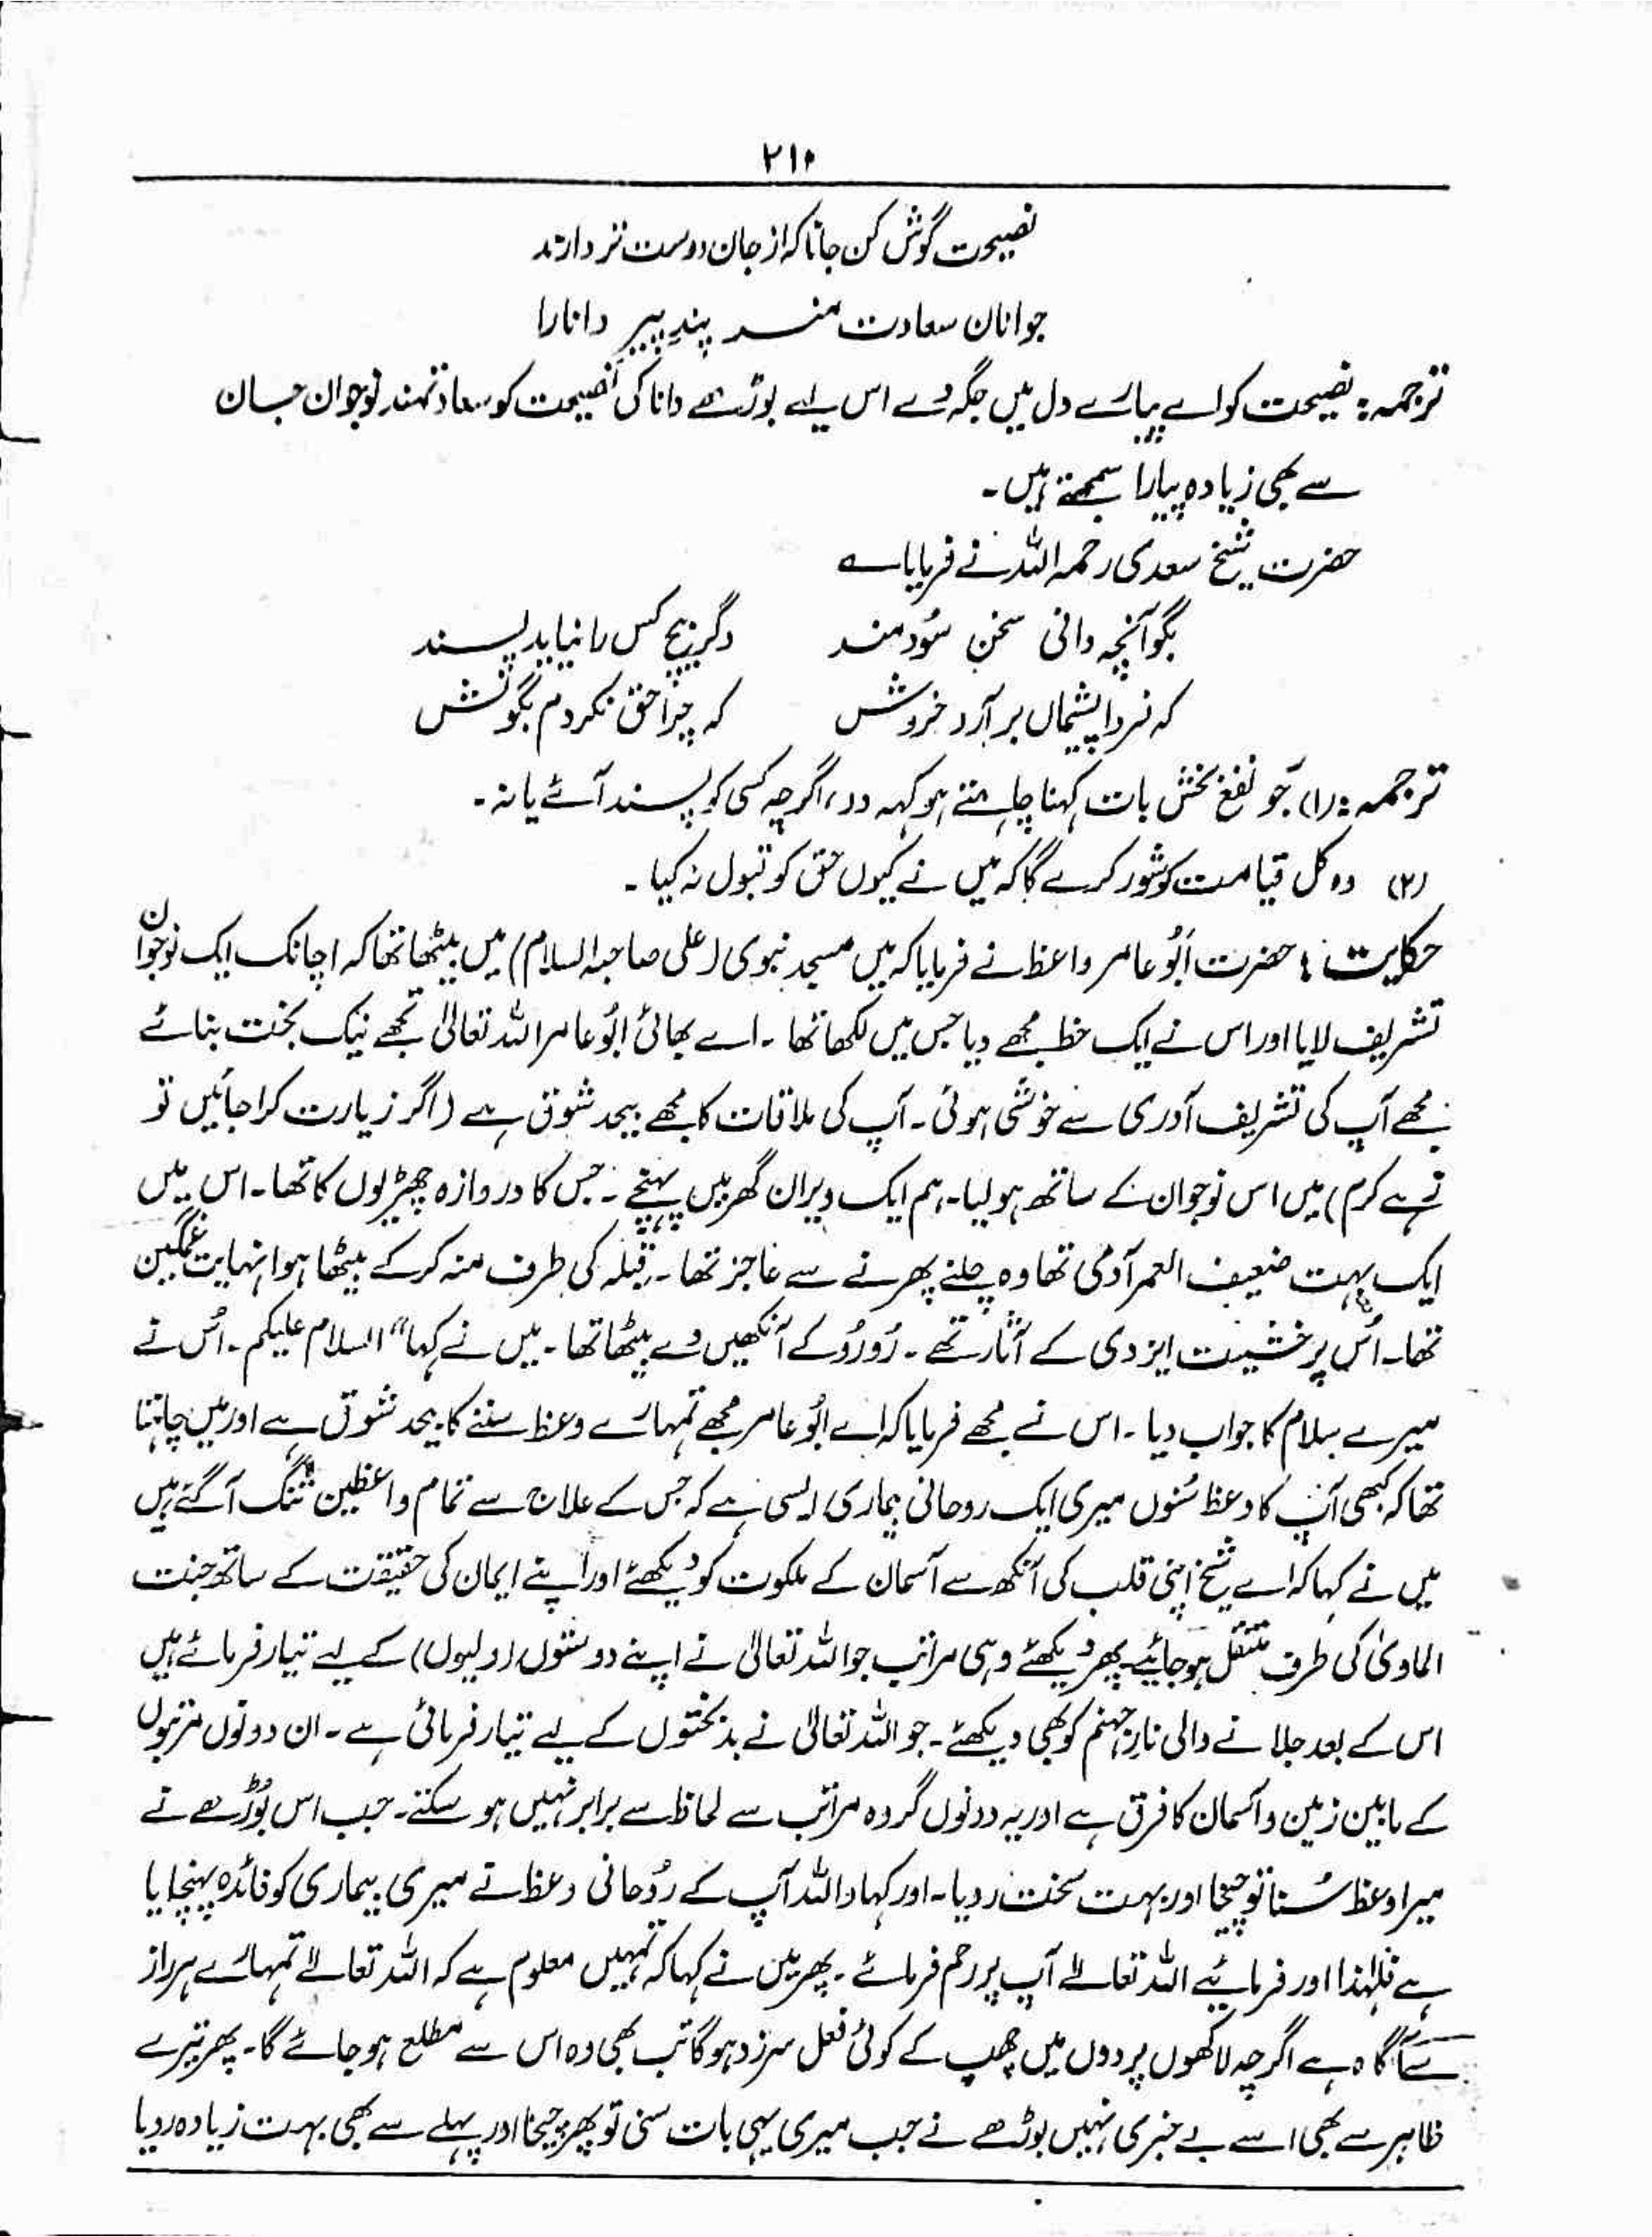 ۲۱۰
نصیحت گوش کن جاناکہ از جان دوست تر دارند
جوانان سعادت مند پندِ پیر دانارا
ترجمہ: نصیحت کو اے پیارے دل میں جگہ دے اس لیے بوڑھے دانا کی نصیحت کو سعادتمند نوجوان جان
سے بھی زیادہ پیارا سمجھتے ہیں۔
حضرت شیخ سعدی رحمہ اللہ نے فرمایا ؎
بگو آنچہ دانی سخن سُود مند دگر ہیچ کس را نیاید پسند
کہ فردا پشیماں بر آرد خروش کہ چرا حق نکردم بگوش
ترجمہ: (۱) جو نفع بخش بات کہنا چاہتے ہو کہہ دو، اگرچہ کسی کو پسند آئے یا نہ۔
(۲) وہ کل قیامت کو شور کرے گا کہ میں نے کیوں حق کو قبول نہ کیا۔
حکایت: حضرت ابُو عامر واعظ نے فرمایا کہ میں مسجد نبوی (علی صاحبہ السلام) میں بیٹھا تھا کہ اچانک ایک نوجوان
تشریف لایا اور اس نے ایک خط مجھے دیا جس میں لکھا تھا۔ اے بھائی ابُو عامر اللہ تعالیٰ تجھے نیک بخت بنائے
مجھے آپ کی تشریف آوری سے خوشی ہوئی۔ آپ کی ملاقات کا مجھے بیحد شوق ہے (اگر زیارت کرا جائیں تو
زہے کرم) میں اس نوجوان کے ساتھ ہو لیا۔ ہم ایک ویران گھر میں پہنچے۔ جس کا دروازہ چھڑیوں کا تھا۔ اس میں
ایک بہت ضعیف العمر آدمی تھا وہ چلنے پھرنے سے عاجز تھا۔ قبلہ کی طرف منہ کر کے بیٹھا ہوا نہایت غمگین
تھا۔ اُس پر خشیت ایزدی کے آثار تھے۔ رُو رُو کے آنکھیں دے بیٹھا تھا۔ میں نے کہا "السلام علیکم۔ اُس نے
میرے سلام کا جواب دیا۔ اس نے مجھے فرمایا کہ اے ابُو عامر مجھے تمہارے وعظ سننے کا بیحد شوق ہے اور میں چاہتا
تھا کہ کبھی آپ کا وعظ سُنوں میری ایک روحانی بیماری ایسی ہے کہ جس کے علاج سے تمام واعظین تنگ آ گئے ہیں
میں نے کہا کہ اے شیخ اپنی قلب کی آنکھ سے آسمان کے ملکوت کو دیکھئے اور اپنے ایمان کی حقیقت کے ساتھ جنت
الماویٰ کی طرف منتقل ہو جائیے پھر دیکھئے وہی مراتب جو اللہ تعالیٰ نے اپنے دوستوں (ولیوں) کے لیے تیار فرمائے ہیں
اس کے بعد جلانے والی نارِ جہنم کو بھی دیکھئے۔ جو اللہ تعالیٰ نے بدبختوں کے لیے تیار فرمائی ہے۔ ان دونوں مرتبوں
کے مابین زمین و آسمان کا فرق ہے اور یہ دونوں گروہ مراتب سے لحاظ سے برابر نہیں ہو سکتے۔ جب اس بُوڑھے نے
میرا وعظ سُنا تو چیخا اور بہت سخت رویا۔ اور کہا واللہ آپ کے رُوحانی وعظ نے میری بیماری کو فائدہ پہنچایا
ہے فلہٰذا اور فرمائیے اللہ تعالےٰ آپ پر رحم فرمائے۔ پھر میں نے کہا کہ تمہیں معلوم ہے کہ اللہ تعالےٰ تمہارے ہر راز
سے آگاہ ہے اگرچہ لاکھوں پردوں میں چھپ کے کوئی فعل سرزد ہو گا تب بھی وہ اس سے مطلع ہو جائے گا۔ پھر تیرے
ظاہر سے بھی اسے بے خبری نہیں بوڑھے نے جب میری یہی بات سنی تو پھر چیخا اور پہلے سے بھی بہت زیادہ رویا